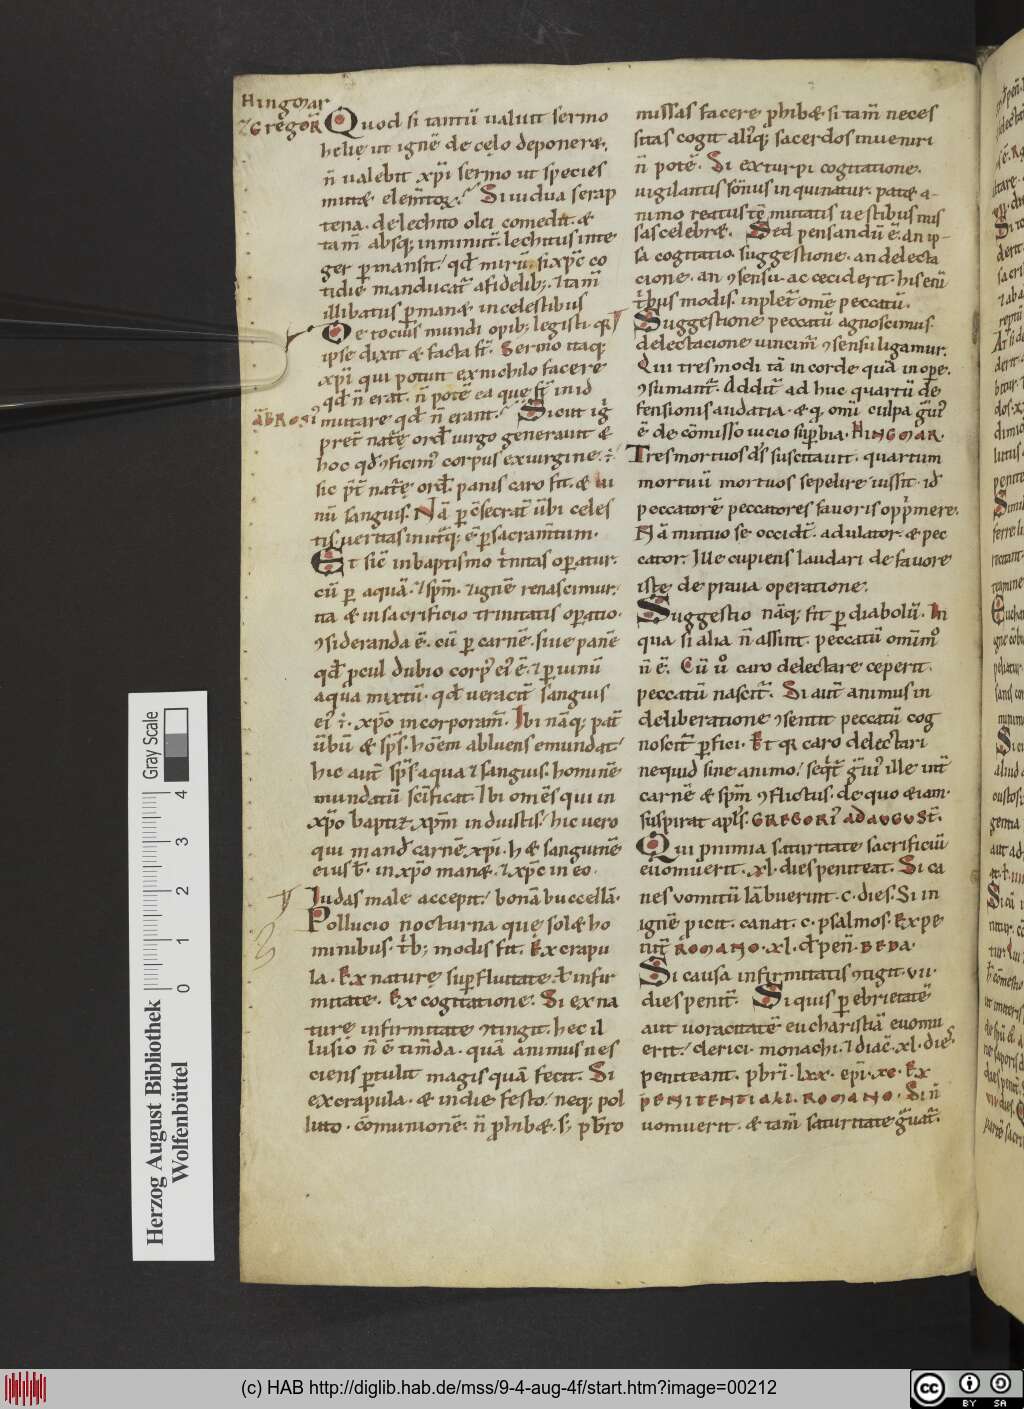 Hingmar
⁊Gregor̄
Quod si tantū ualuit sermo
helię ut ignē de cęlo deponeræ.
n̄ ualebit xp̄i sermo ut species
mutæ elem̄toꝝ. Si uidua serap
tena. de lechito olei comedit. æ
tam̄ absq; inminut̄. lechitus inte
ger ꝑmansit. qđ mirū. si xp̄c co
tidie manducat̄ a fidelib;. ⁊ tam̄
illibatus ꝑmanæ in celestibus
De tocius mundi opib; legisti. qr
ipse dixit æ facta st̄. Sermo itaq;
xp̄i qui potuit ex nichilo facere
qđ n̄ erat. n̄ potē ea quę st̄ in id
ĀBROSI᾽
mutare qđ n̄ erant. Sicut igr̄
pret̄ natr̄ę ord̄ uirgo generauit æ
hoc qđ ꝯficim᾽ corpus ex uirgine. ē
sic p̄t̄ natr̄ę ord̄. panis caro fit. æ ui
nū sanguis. Nā ꝑ c̄secrat̄ ūbi celes
tis. ueritas inuit̄q; ē ꝑ sacram̄tum.
Et sic̄ in baptismo tr̄nitas oꝑatur.
cū ꝑ aquā. ⁊ sp̄m. ⁊ ignē renascimur.
ita æ in sacrificio trinitatis oꝑatio.
ꝯsideranda ē. cū ꝑ carnē. siue panē
qđ pcul dubio corp᾽ ei᾽ ē. ⁊ ꝑ uinū
aqua mixtū. qđ ueracit̄ sanguis
ei᾽ ē. xp̄o incorporam̄. Ibi nāq; pat̄
ūbū æ sp̄s. hoēm abluens emundat
hic aut̄ sp̄s aqua ⁊ sanguis. hominē
mundatū scīficat. Ibi omēs qui in
xp̄o baptiz̄. xp̄m induistis. hic uero
qui mand̄ carnē xp̄i. h æ sanguinē
eius b̄. in xp̄o manæ. ⁊ xp̄c in eo.
Iudas male accepit. bonā buccellā.
Pollucio nocturna quę solæ ho
minibus. tb; modis fit. Ex crapu
la. Ex naturę supfluitate. ł infir
mitate. Ex cogitatione. Si ex na
turę infirmitate ꝯtingit. hec il
lusio n̄ ē tim̄da. quā animus nes
ciens ꝑtulit magis quā fecit. Si
ex crapula. æ in die festo. neq; pol
luto. cōmunionē. n̄ phibæ. s; pb̄ro
missas facere phibæ si tam̄ neces
sitas cogit aliq; sacerdos inueniri
n̄ potē. Si ex turpi cogitatione.
uigilantis sōnus inquinatur. patæ a-
nimo reatus tē mutatis uestibus mis
sas celebræ. Sed pensandū ē. an ip-
sa cogitatio suggestione. an delecta
cione. an ꝯsensu. acceciderit. his etū
tribus modis. inplet̄ omē peccatū.
Suggestione peccatū agnoscimus.
delectacione uincim᾽ ꝯsensu ligamur.
Qui tres modi tā in corde quā in ope.
ꝯsumant̄. Addit̄ ad huc quartū de
fensionis audatia. æ q. om̄i culpa g̃ui᾽
ē de cōmisso uicio suꝑbia. HINGMAR.
Tres mortuos dn̄s suscitauit. quartum
mortuū mortuos sepelire iussit. id
peccatorē peccatores fauoris oppmere.
Nā mutuo se occidt̄. adulator. æ pec
cator. Ille cupiens laudari de fauore
iste de praua operatione.
Suggestio nāq; fit ꝑ diabolū. In
qua si alia n̄ assint. peccatū omīm᾽
n̄ ē. Cū ů caro delectare ceperit.
peccatū nascit̄. Si aut̄ animus in
deliberatione ꝯsentit peccatū cog
noscit̄ ꝑfici. Et qr caro delectari
nequid sine animo. seqt̄ g̃ui᾽ ille int̄
carnē æ sp̄m ꝯflictus. de quo æiam.
suspirat apl̄s. GREGORI᾽ AD AUGUST̄.
Qui pnimia saturitate sacrificiū
euomuerit. xl. dies peniteat. Si ca
nes uomitū lābuerint. c. dies. Si in
ignē picit. canat. c. psalmos. Ex pe
nit̄ ROMANO. xl. d. pen̄. BEDA.
Si causa infirmitatis ꝯtigit. vii.
dies penit̄. Si quis ꝑ ebrietatē
aut uoracitatē eucharistiā euomu
erit. clerici. monachi. ⁊ diac̄. xl. dies
peniteant. pb̄ri. lxx. ep̄i. xc. Ex
PENITENTIALI. ROMANO. Si n̄
uomuerit. æ tam̄ saturitate g̃uat̄.
Herzog August Bibliothek
Wolfenbüttel
Gray Scale
0 1 2 3 4
(c) HAB http://diglib.hab.de/mss/9-4-aug-4f/start.htm?image=00212
cc BY SA